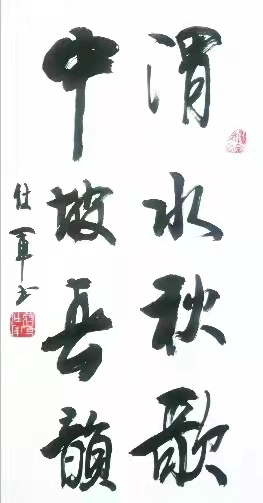 渭水秋歌
中坡春韻
仕軍书